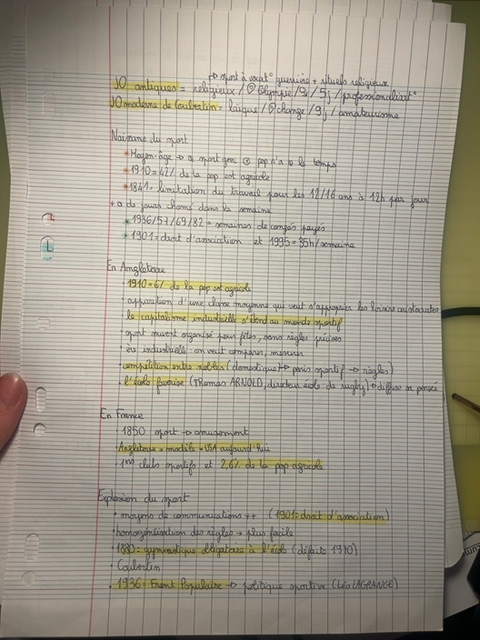 → sport à vocat° guerrière + rituels religieux
JO antiques = religieux / Olympie / 5j / professionnalisat°
JO moderne de Coubertin = laïque / change / 9j / amateurisme
Naissance du sport
* Moyen-âge → sport pop n'a le temps
* 1910 = 42% de la pop est agricole
* 1841 = limitation du travail pour les 12/16 ans à 12h par jour
de jours chômé dans la semaine
* 1936/57/69/82 = semaines de congés payés
* 1901 = droit d'association et 1995 = 35h/semaine
En Angleterre
1910 = 6% de la pop est agricole
d'une classe moyenne qui veut s'approprier les loisirs aristocrates
le capitalisme industrielle s'étend au monde sportif
sport souvent organisé pour fêtes, sans règles précises
ère industrielle = on veut comparer, mesurer
compétition entre nobles (domestique → paris sportif → règles)
l'école favorise (Thomas ARNOLD, directeur école de rugby) diffuse sa pensée
En France
1850 sport → amusement
Angleterre = modèle = USA aujourd'hui
1ers clubs sportifs et 2,6% de la pop agricole
Explosion du sport
moyens de communications ++ (1901: droit d'association)
homogénéisation des règles → plus facile
1880 = gymnastique obligatoire à l'école (défaite 1970)
Coubertin
1936 = Front Populaire → politique sportive (Léo LAGRANGE)